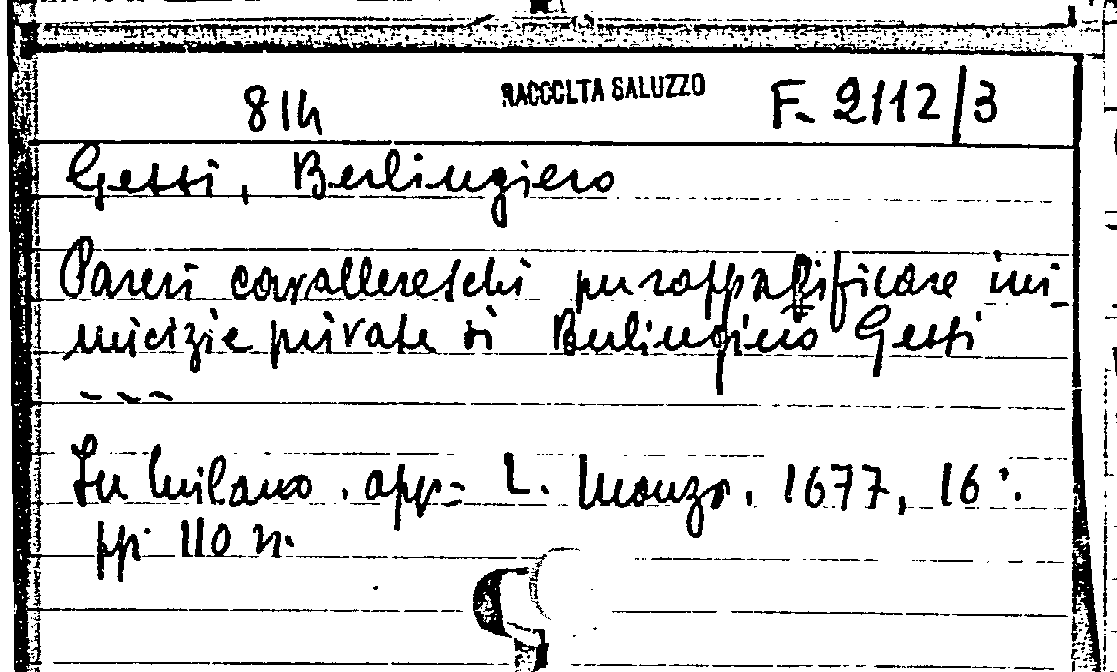 814 RACCOLTA SALUZZO F. 2112/3
Gessi, Berlingiero
Pareri cavallereschi per rappacificare ini-
micizie private di Berlingiero Gessi
---
In Milano. app= L. Monza. 1677, 16°.
pp. 110 n.